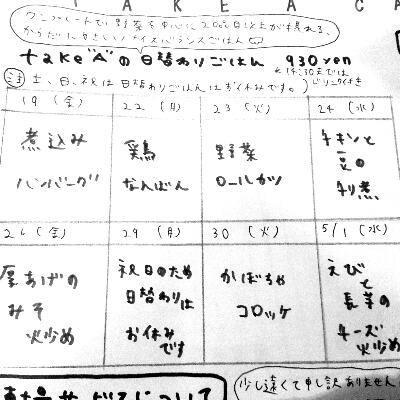 TAKEACA
ワンプレートで、野菜を中心に20品目以上が摂れる、
からだにやさしいナイスバランスごはん
take"A"の日替わりごはん 930yen
※14:30までは
ドリンク付き
注 土、日、祝は日替わりごはんはお休みです。
19(金) 22(月) 23(火) 24(水)
煮込み
ハンバーグ
鶏
なんばん
野菜
ロールカツ
チキンと
豆の
トマト煮
26(金) 29(月) 30(火) 5/1(水)
厚あげの
みそ
炒め
祝日のため
日替わりは
お休み
です
かぼちゃ
コロッケ
えび
と
長芋の
チーズ
炒め
少し遠くて申し訳ありません